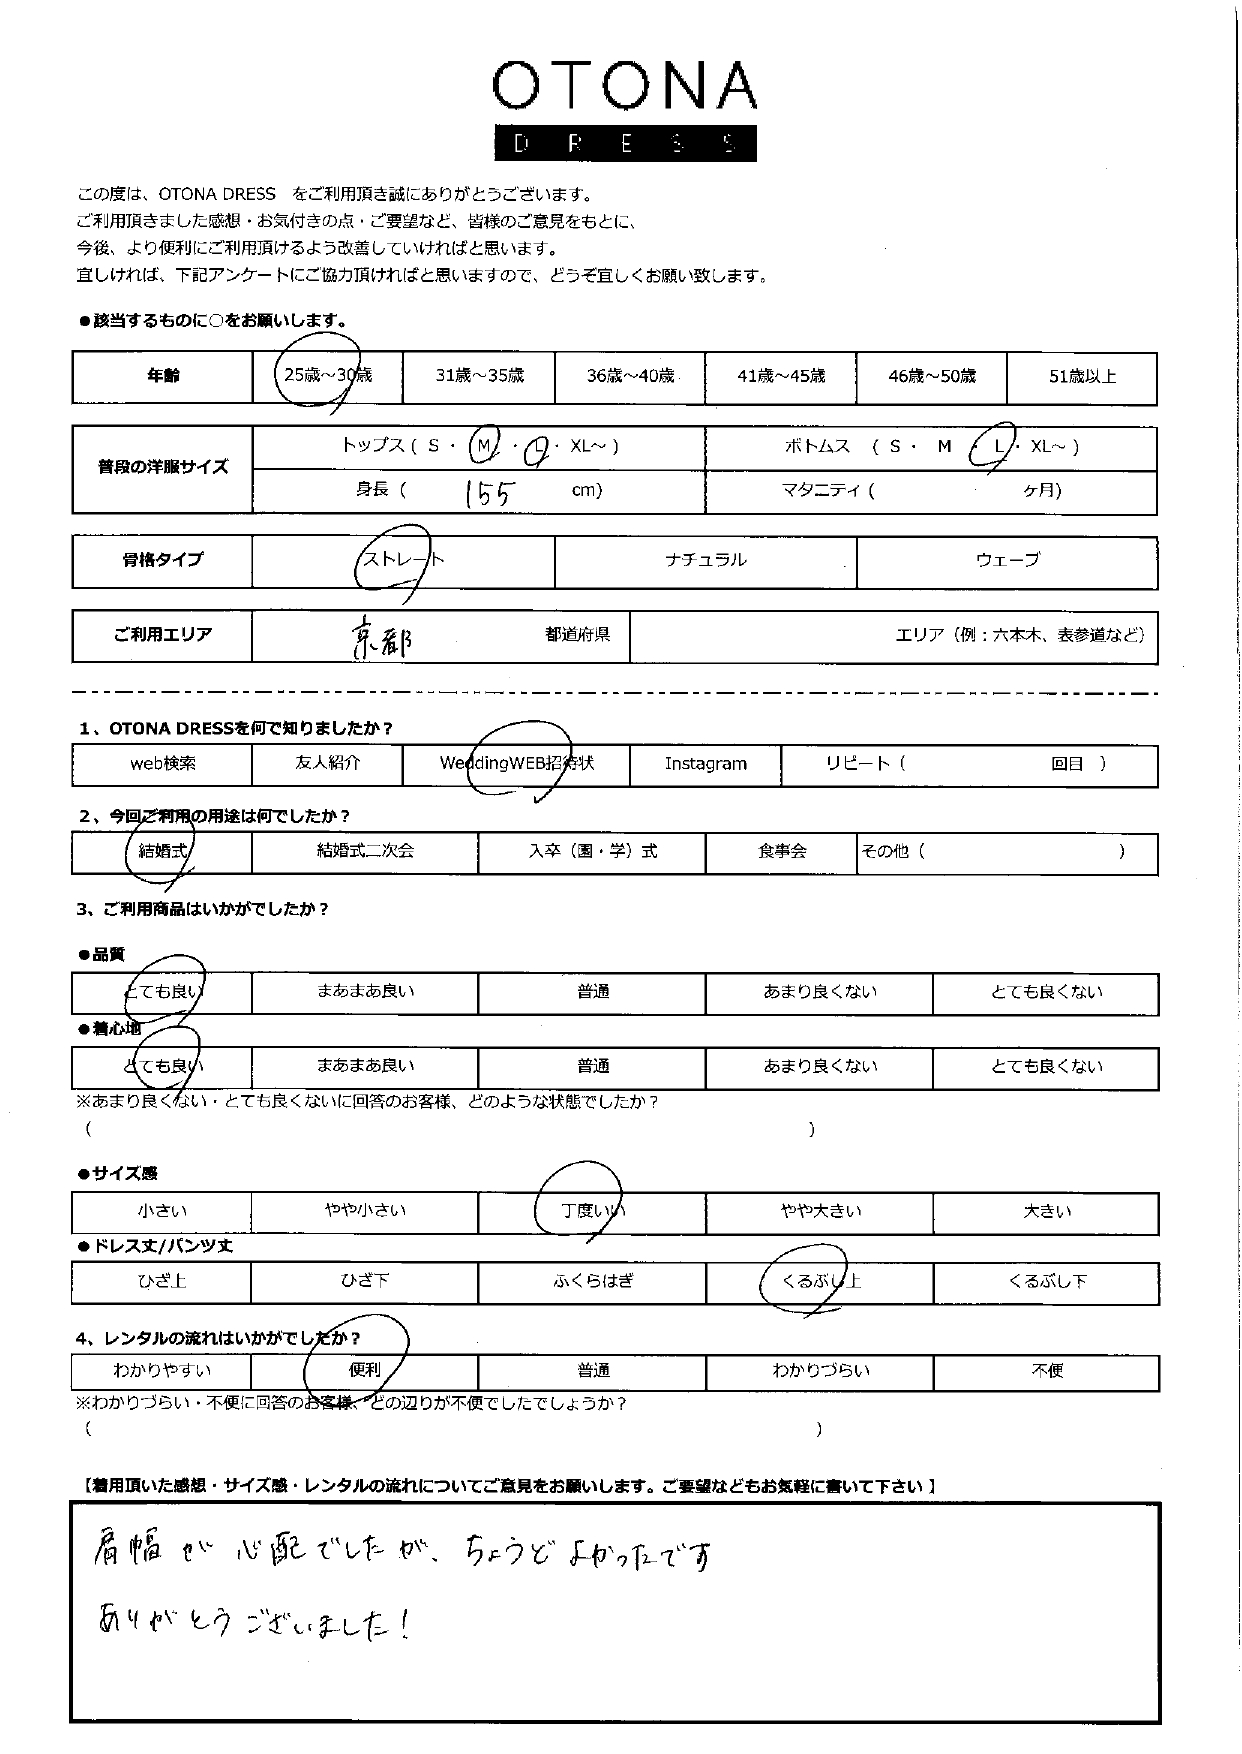 OTONA
DRESS
この度は、OTONA DRESS　をご利用頂き誠にありがとうございます。
ご利用頂きました感想・お気付きの点・ご要望など、皆様のご意見をもとに、
今後、より便利にご利用頂けるよう改善していければと思います。
宜しければ、下記アンケートにご協力頂ければと思いますので、どうぞ宜しくお願い致します。
●該当するものに○をお願いします。
年齢 25歳～30歳 31歳～35歳 36歳～40歳 41歳～45歳 46歳～50歳 51歳以上
普段の洋服サイズ トップス ( S ・ M ・ L ・ XL～ ) ボトムス ( S ・ M ・ L ・ XL～ )
身長 ( 155 cm) マタニティ ( ヶ月)
骨格タイプ ストレート ナチュラル ウェーブ
ご利用エリア 京都 都道府県 エリア（例：六本木、表参道など）
1、OTONA DRESSを何で知りましたか？
web検索 友人紹介 WeddingWEB招待状 Instagram リピート（ 回目 ）
2、今回ご利用の用途は何でしたか？
結婚式 結婚式二次会 入卒（園・学）式 食事会 その他（ ）
3、ご利用商品はいかがでしたか？
●品質
とても良い まあまあ良い 普通 あまり良くない とても良くない
●着心地
とても良い まあまあ良い 普通 あまり良くない とても良くない
※あまり良くない・とても良くないに回答のお客様、どのような状態でしたか？
（ ）
●サイズ感
小さい やや小さい 丁度いい やや大きい 大きい
●ドレス丈/パンツ丈
ひざ上 ひざ下 ふくらはぎ くるぶし上 くるぶし下
4、レンタルの流れはいかがでしたか？
わかりやすい 便利 普通 わかりづらい 不便
※わかりづらい・不便に回答のお客様、どの辺りが不便でしたでしょうか？
（ ）
【着用頂いた感想・サイズ感・レンタルの流れについてご意見をお願いします。ご要望などもお気軽に書いて下さい】
肩幅が心配でしたが、ちょうどよかったです
ありがとうございました！